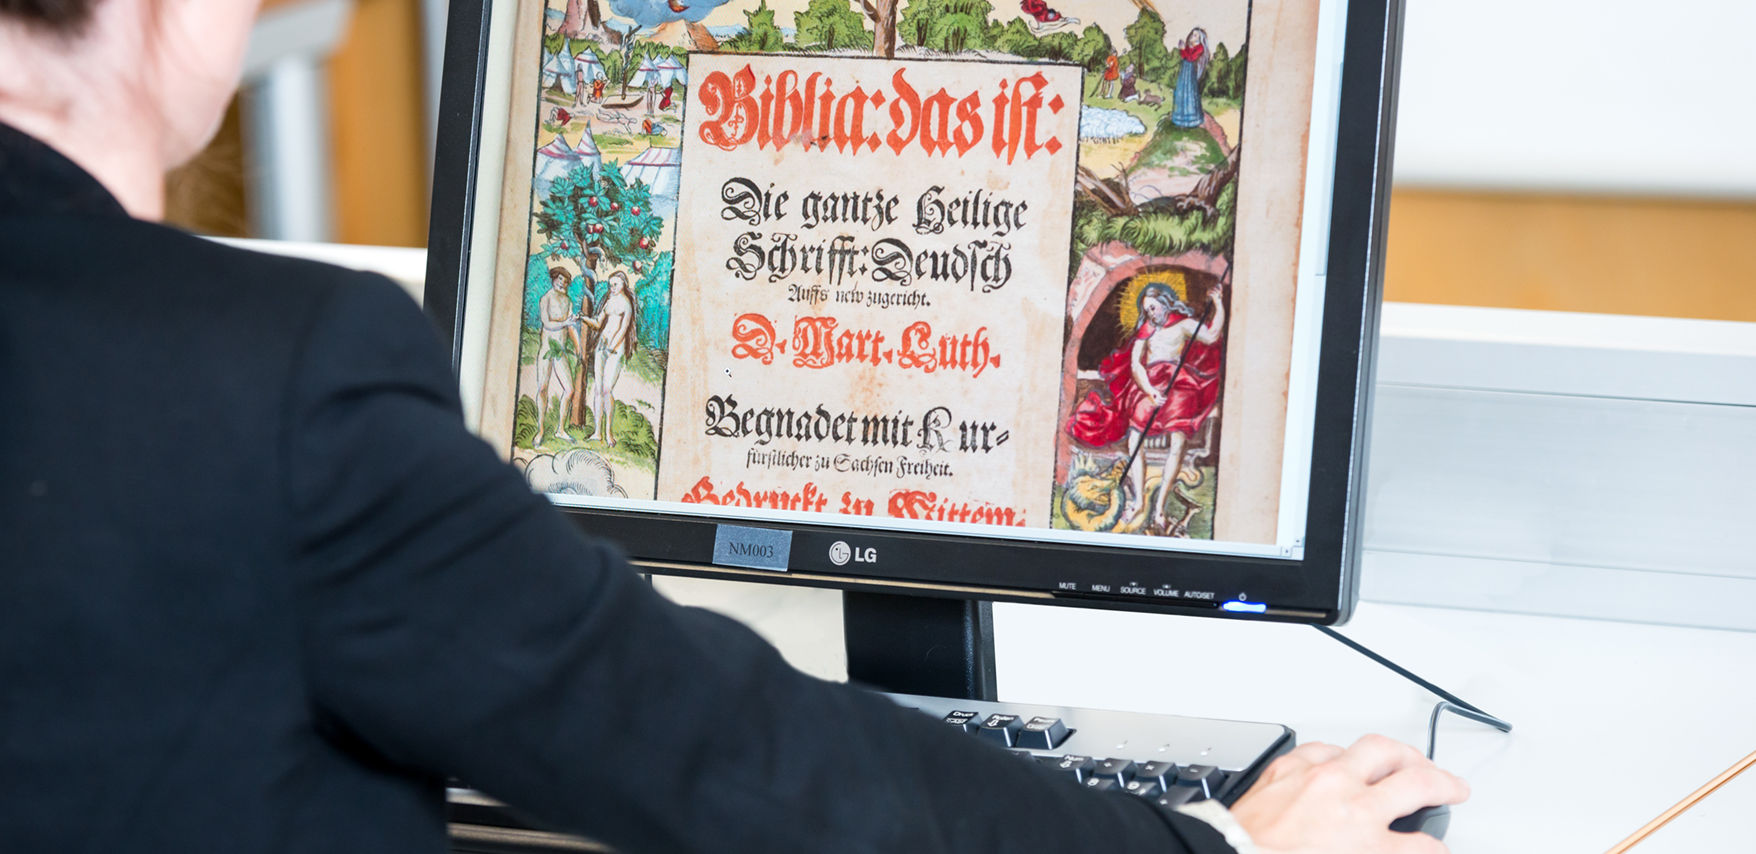 Biblia: das ist:
Die gantze Heilige
Schrifft: Deudsch
Auffs new zugericht.
D. Mart. Luth.
Begnadet mit Kur-
fürstlicher zu Sachsen Freiheit.
Gedruckt zu Wittem-
NM003
LG
MUTE MENU SOURCE VOLUME AUTO/SET